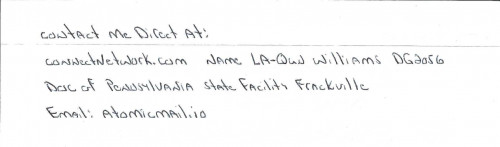 Contact me Direct At:
connectnetwork.com Name LA-Qun Williams DG2056
Dosc of Pennsylvania State Facility Frackville
Email: Atomicmail.io